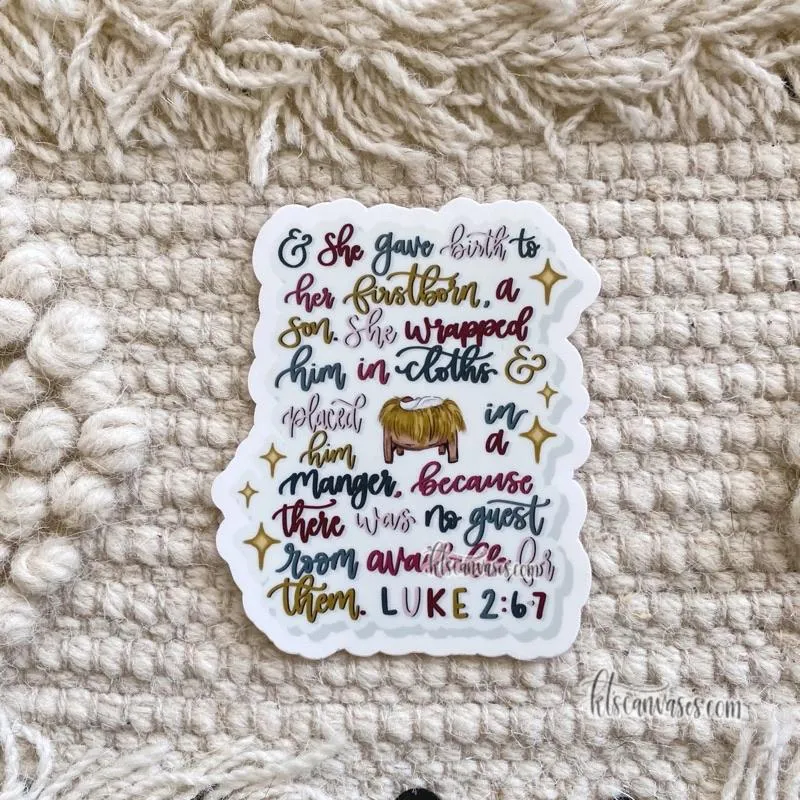 & she gave birth to
her firstborn, a
son. She wrapped
him in cloths &
placed in
him a
manger, because
there was no guest
room available for
them. LUKE 2:6-7
ktscanvases.com
ktscanvases.com